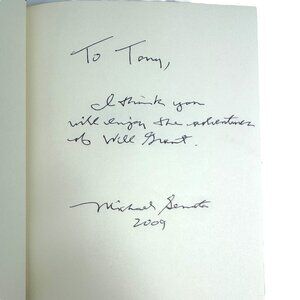 To Tony,
I think you
will enjoy the adventures
of Will Grant.
Michael
2009